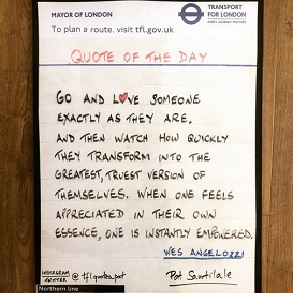 MAYOR OF LONDON
TRANSPORT
FOR LONDON
EVERY JOURNEY MATTERS
To plan a route, visit tfl.gov.uk
QUOTE OF THE DAY
GO AND LOVE SOMEONE
EXACTLY AS THEY ARE.
AND THEN WATCH HOW QUICKLY
THEY TRANSFORM INTO THE
GREATEST, TRUEST VERSION OF
THEMSELVES. WHEN ONE FEELS
APPRECIATED IN THEIR OWN
ESSENCE, ONE IS INSTANTLY EMPOWERED.
WES ANGELOZZI
INSTAGRAM
TWITTER
@ tflquotes_pat
Pat
Northern line